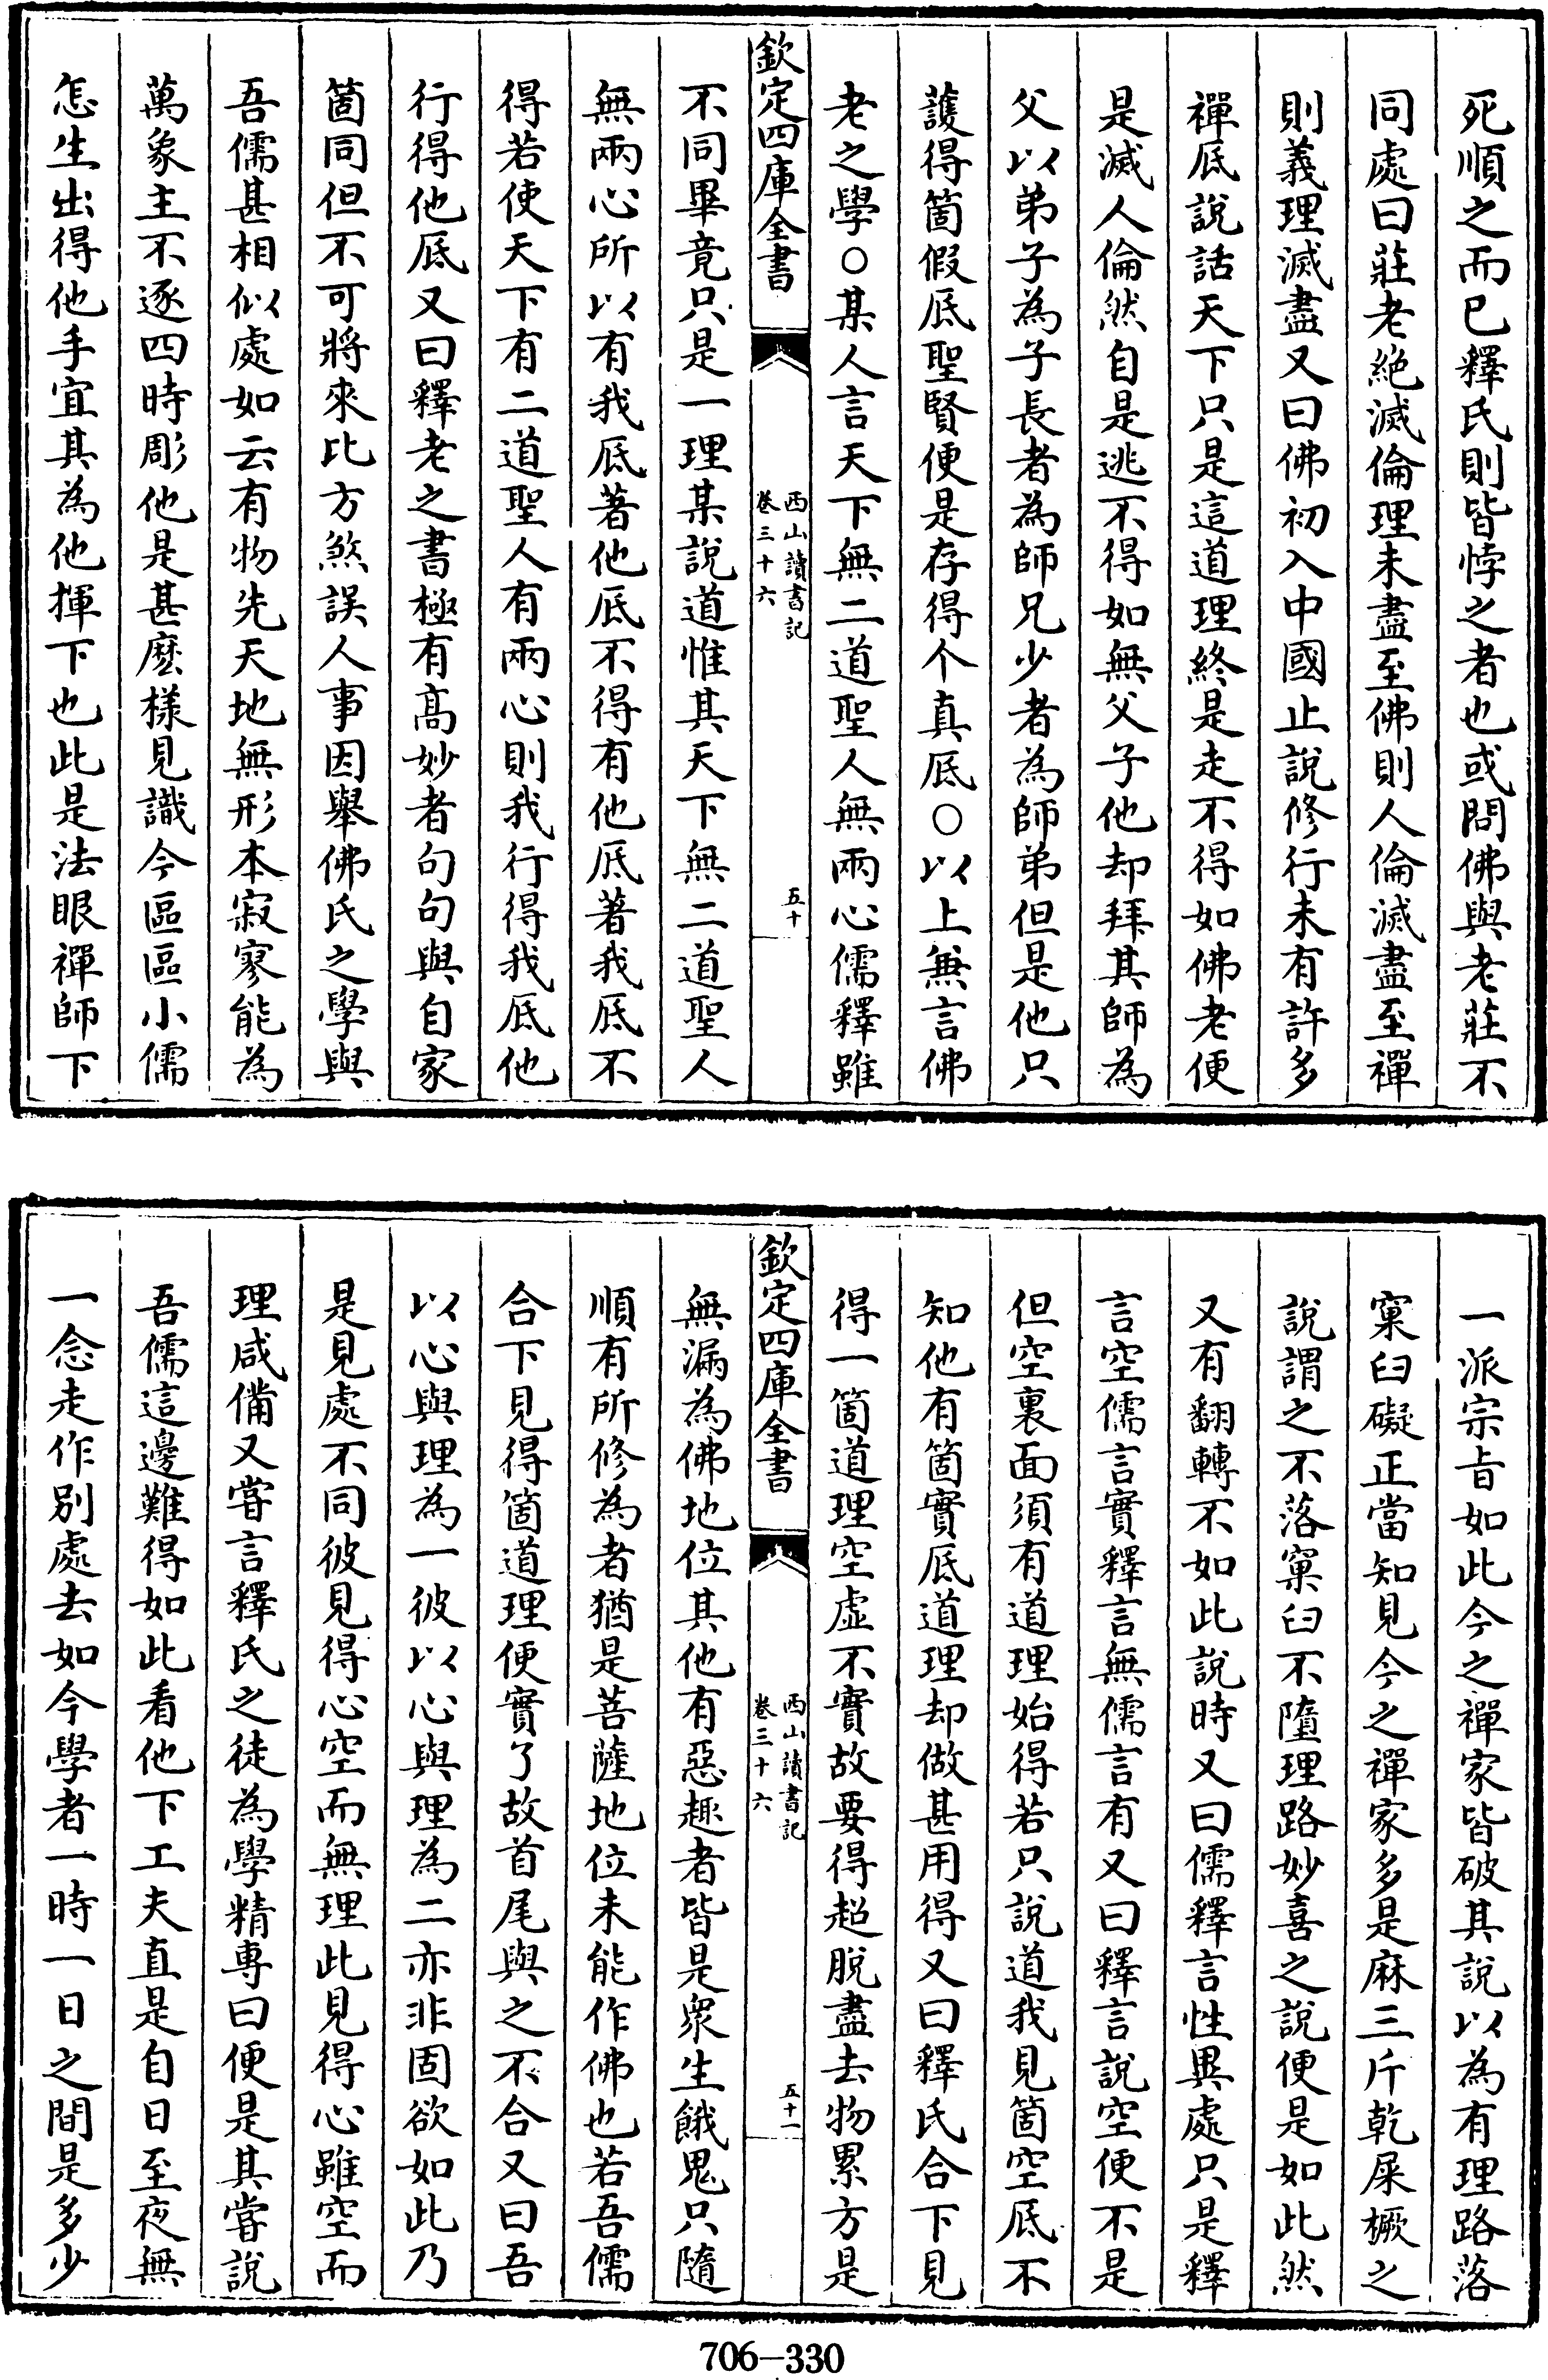 死順之而已釋氏則皆悖之者也或問佛與老莊不
同處曰莊老絶滅倫理未盡至佛則人倫滅盡至禪
則義理滅盡又曰佛初入中國止說修行未有許多
禪底說話天下只是這道理終是走不得如佛老便
是滅人倫然自是逃不得如無父子他却拜其師為
父以弟子為子長者為師兄少者為師弟但是他只
護得箇假底聖賢便是存得个真底○以上兼言佛
老之學○某人言天下無二道聖人無兩心儒釋雖
欽定四庫全書
西山讀書記
卷三十六
五十
不同畢竟只是一理某說道惟其天下無二道聖人
無兩心所以有我底著他底不得有他底著我底不
得若使天下有二道聖人有兩心則我行得我底他
行得他底又曰釋老之書極有高妙者句句與自家
箇同但不可將來比方煞誤人事因舉佛氏之學與
吾儒甚相似處如云有物先天地無形本寂寥能為
萬象主不逐四時彫他是甚麽樣見識今區區小儒
怎生出得他手宜其為他揮下也此是法眼禪師下
一派宗旨如此今之禪家皆破其說以為有理路落
窠臼礙正當知見今之禪家多是麻三斤乾屎橛之
說謂之不落窠臼不墮理路妙喜之說便是如此然
又有翻轉不如此說時又曰儒釋言性異處只是釋
言空儒言實釋言無儒言有又曰釋言說空便不是
但空裏面須有道理始得若只說道我見箇空底不
知他有箇實底道理却做甚用得又曰釋氏合下見
得一箇道理空虛不實故要得超脫盡去物累方是
欽定四庫全書
西山讀書記
卷三十六
五十一
無漏為佛地位其他有惡趣者皆是衆生餓鬼只隨
順有所修為者猶是菩薩地位未能作佛也若吾儒
合下見得箇道理便實了故首尾與之不合又曰吾
以心與理為一彼以心與理為二亦非固欲如此乃
是見處不同彼見得心空而無理此見得心雖空而
理咸備又嘗言釋氏之徒為學精專曰便是其嘗說
吾儒這邊難得如此看他下工夫直是自日至夜無
一念走作別處去如今學者一時一日之間是多少
706-330